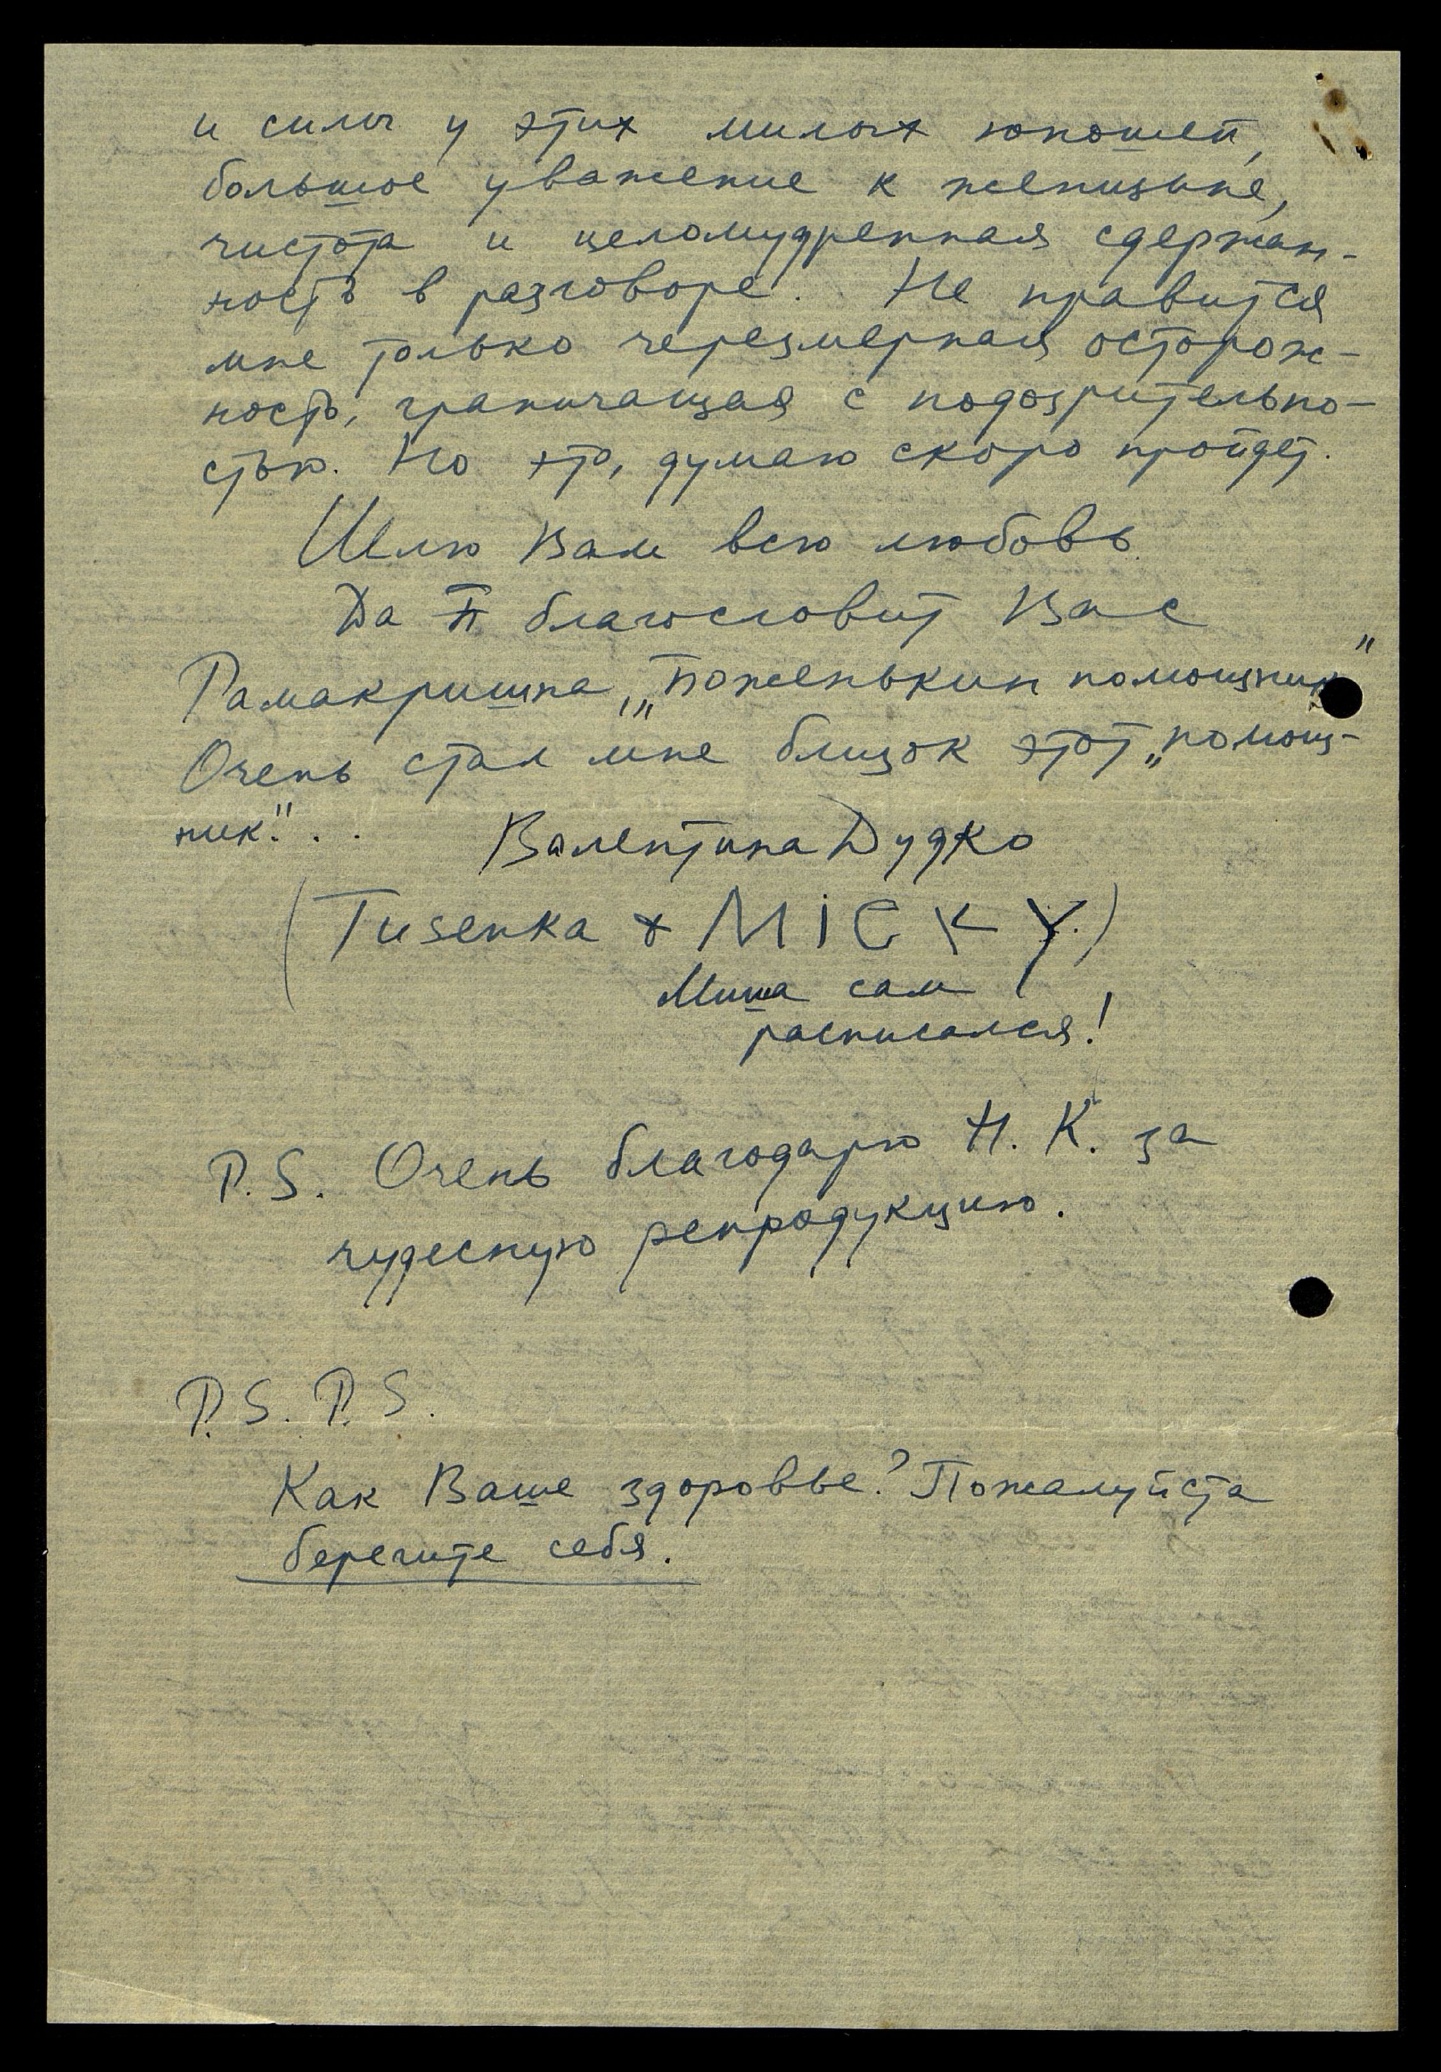 и силы у этих милых юношей,
большое уважение к женщине,
чистота и целомудренная сдержан-
ность в разговоре. Не нравится
мне только черезмерная осторож-
ность, граничащая с подозрительно-
стью. Но это, думаю скоро пройдет.
Шлю Вам всю любовь
Да благословит Вас
Рамакришна, „Боженькин помощник"
Очень стал мне близок этот „помощ-
ник"...
Валентина Дудко
(Tusenka & MICKY.)
Миша сам
расписался!
P.S. Очень благодарю Н. К. за
чудесную репродукцию.
P.S. P.S.
Как Ваше здоровье? Пожалуйста
берегите себя.